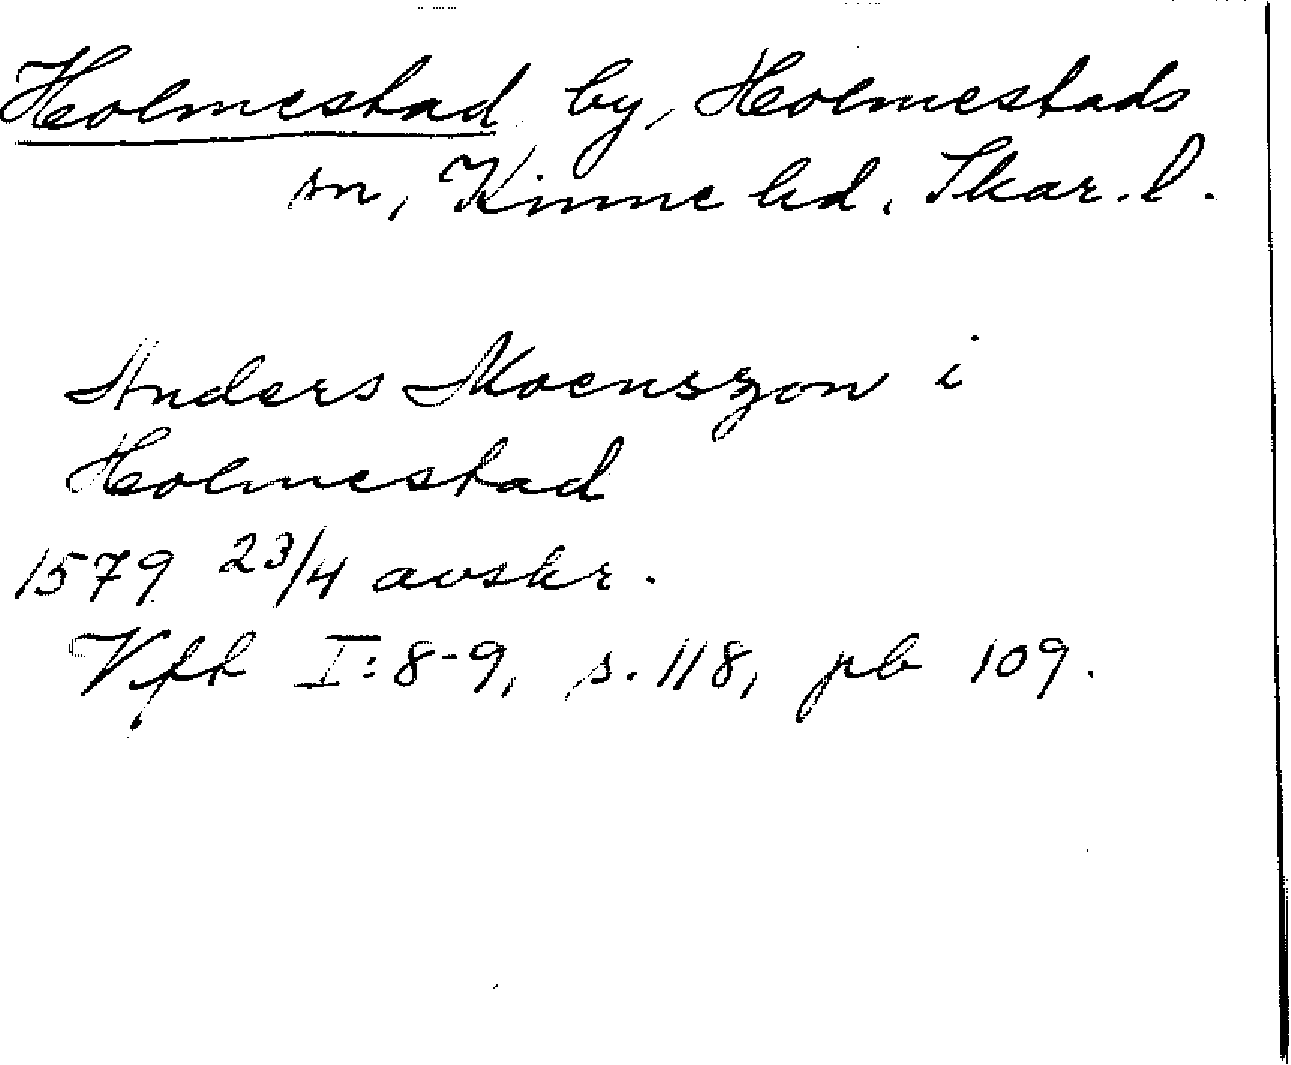 Holmestad by, Holmestads
sn, Kinne hd. Skar. l.
Anders Moenszon i
Holmestad
1579 23/4 avskr.
Vfh I:8-9, s. 118, pb 109.